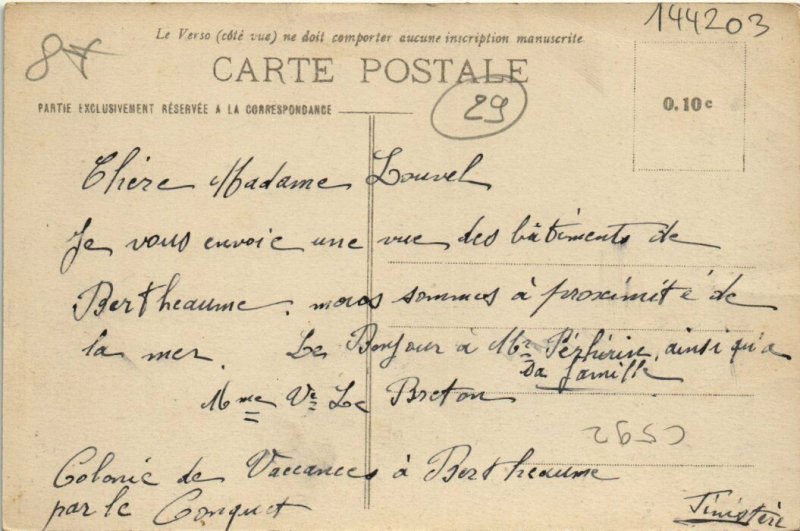 144203
87
Le Verso (côté vue) ne doit comporter aucune inscription manuscrite
CARTE POSTALE
29
0.10c
PARTIE EXCLUSIVEMENT RÉSERVÉE A LA CORRESPONDANCE
Chère Madame Louvel
Je vous envoie une vue des bâtiments de
Bertheaume. nous sommes à proximité de
la mer. Le Bonjour à Mr ainsi qu'a
Sa famille
Mme Ve Le Breton
C592
Colonie de Vaccances à Bertheaume
par le Conquet
Finistère